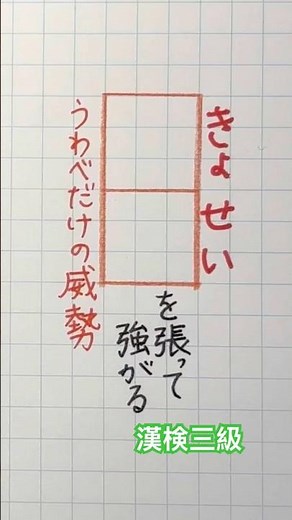 きょせい
を張って
強がる
うわべだけの威勢
漢検三級